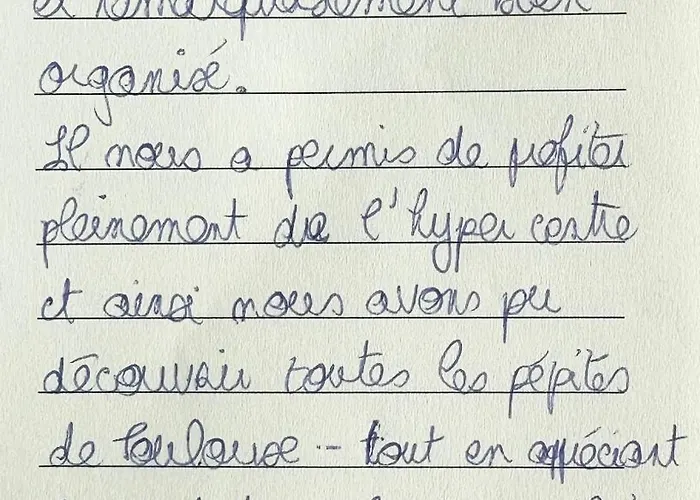 et remarquablement bien
organisé.
Il nous a permis de profiter
pleinement de l'hyper centre
et ainsi nous avons pu
découvrir toutes les pépites
de Toulouse -- tout en appréciant